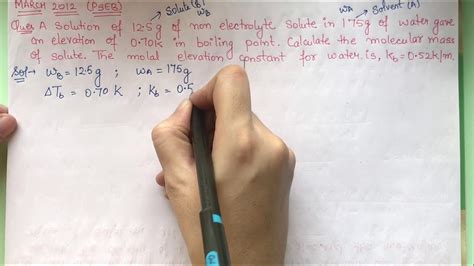 MARCH 2012 (PSEB) Solute (B) WB WA → Solvent (A)
Ques A Solution of 12.5g of non electrolyte solute in 175g of water gave
an elevation of 0.70k in boiling point. Calculate the molecular mass
of solute. The molal elevation constant for water is, kb=0.52k/m.
Sol→ WB = 12.5g ; WA = 175g
ΔTb = 0.70 K ; Kb = 0.5